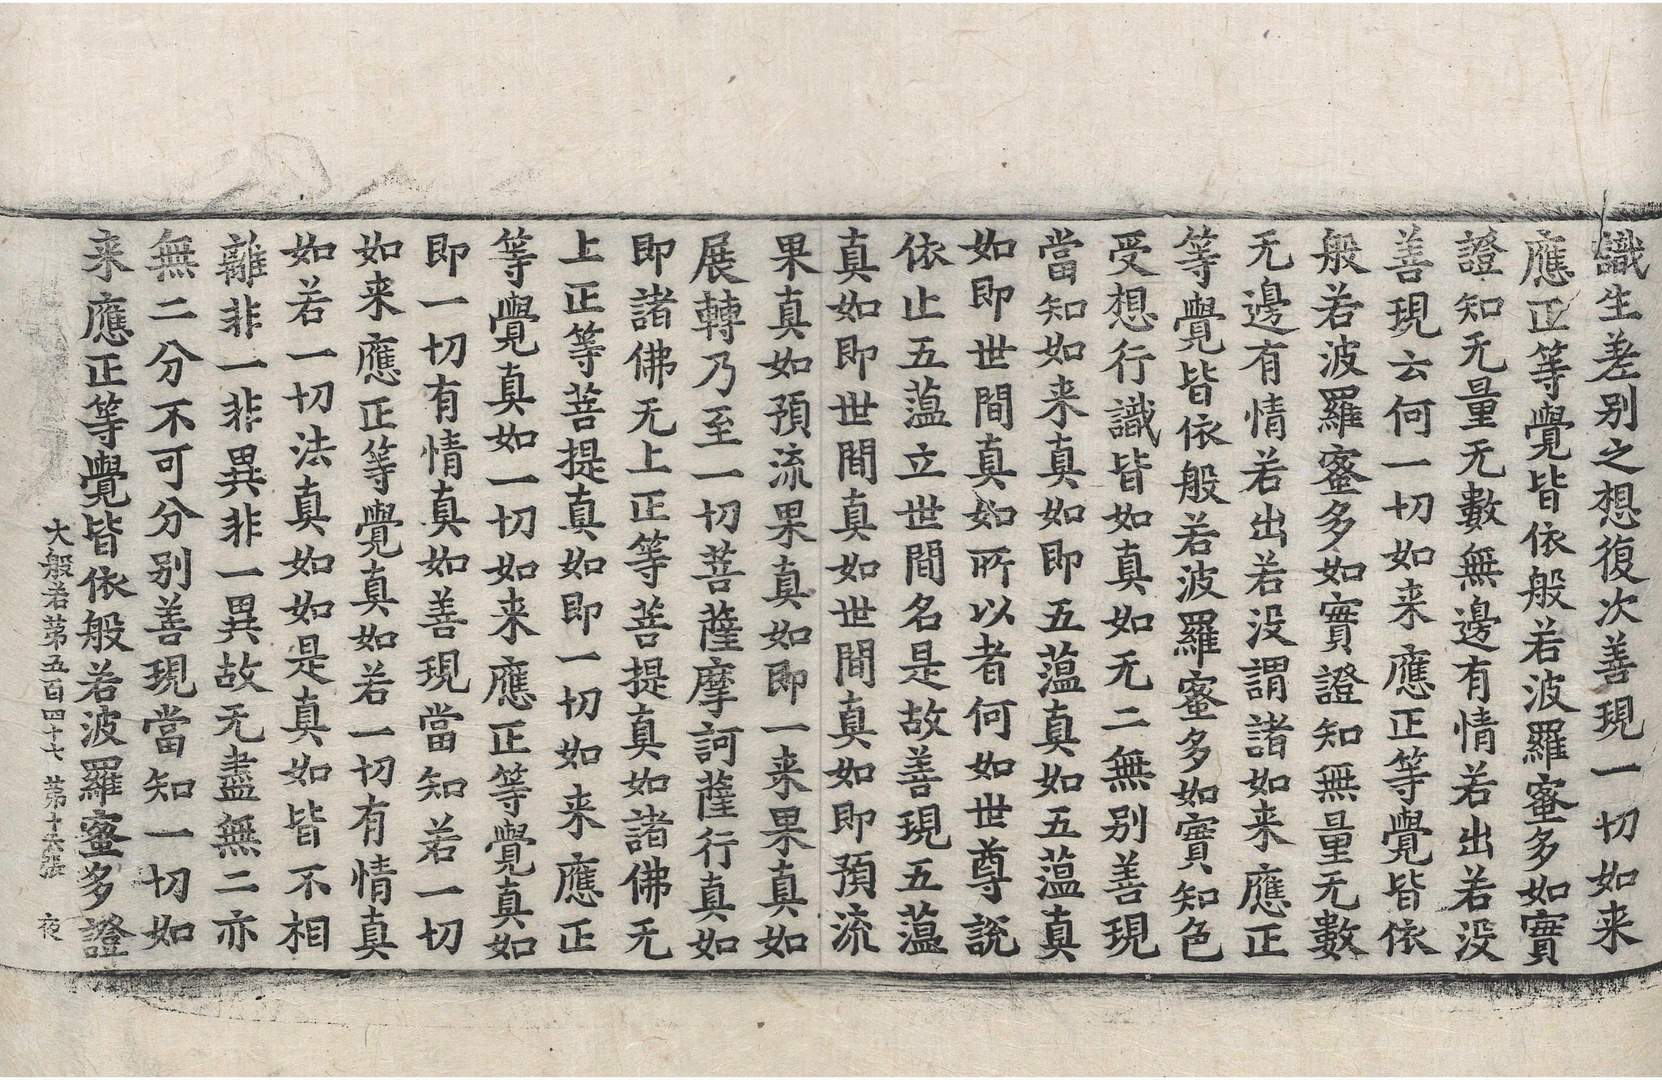 識生差别之想復次善現一切如来
應正等覺皆依般若波羅蜜多如實
證知无量无數無邊有情若出若没
善現云何一切如来應正等覺皆依
般若波羅蜜多如實證知無量无數
无邊有情若出若没謂諸如来應正
等覺皆依般若波羅蜜多如實知色
受想行識皆如真如无二無别善現
當知如来真如即五蕰真如五蕰真
如即世間真如所以者何如世尊說
依止五蕰立世間名是故善現五蕰
真如即世間真如世間真如即預流
果真如預流果真如即一来果真如
展轉乃至一切菩薩摩訶薩行真如
即諸佛无上正等菩提真如諸佛无
上正等菩提真如即一切如来應正
等覺真如一切如来應正等覺真如
即一切有情真如善現當知若一切
如来應正等覺真如若一切有情真
如若一切法真如如是真如皆不相
離非一非異非一異故无盡無二亦
無二分不可分别善現當知一切如
来應正等覺皆依般若波羅蜜多證
大般若第五百四十七 第十六張 夜